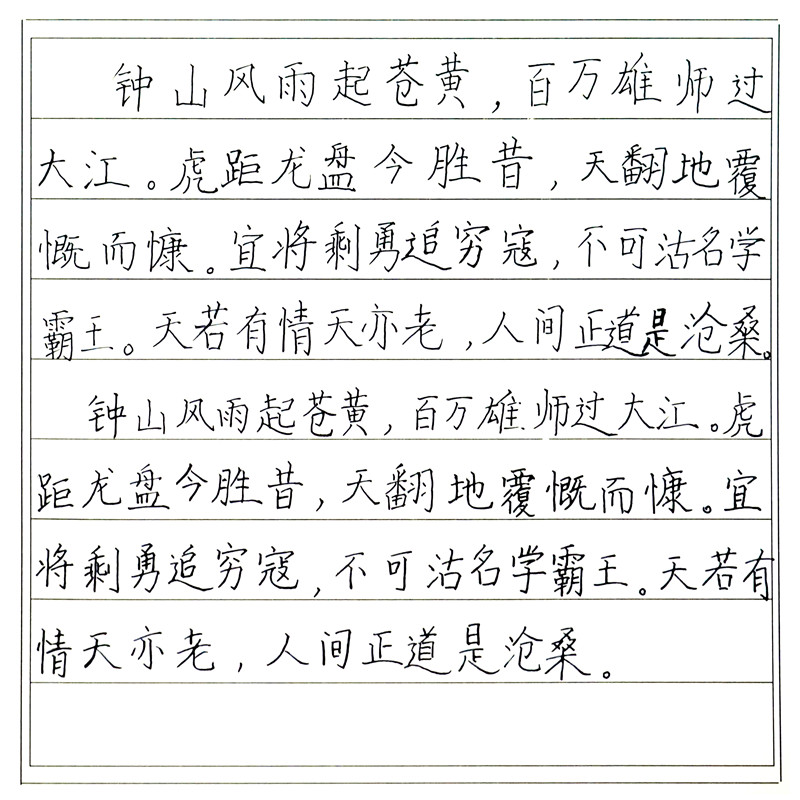 钟山风雨起苍黄，百万雄师过
大江。虎距龙盘今胜昔，天翻地覆
慨而慷。宜将剩勇追穷寇，不可沽名学
霸王。天若有情天亦老，人间正道是沧桑。
钟山风雨起苍黄，百万雄师过大江。虎
距龙盘今胜昔，天翻地覆慨而慷。宜
将剩勇追穷寇，不可沽名学霸王。天若有
情天亦老，人间正道是沧桑。